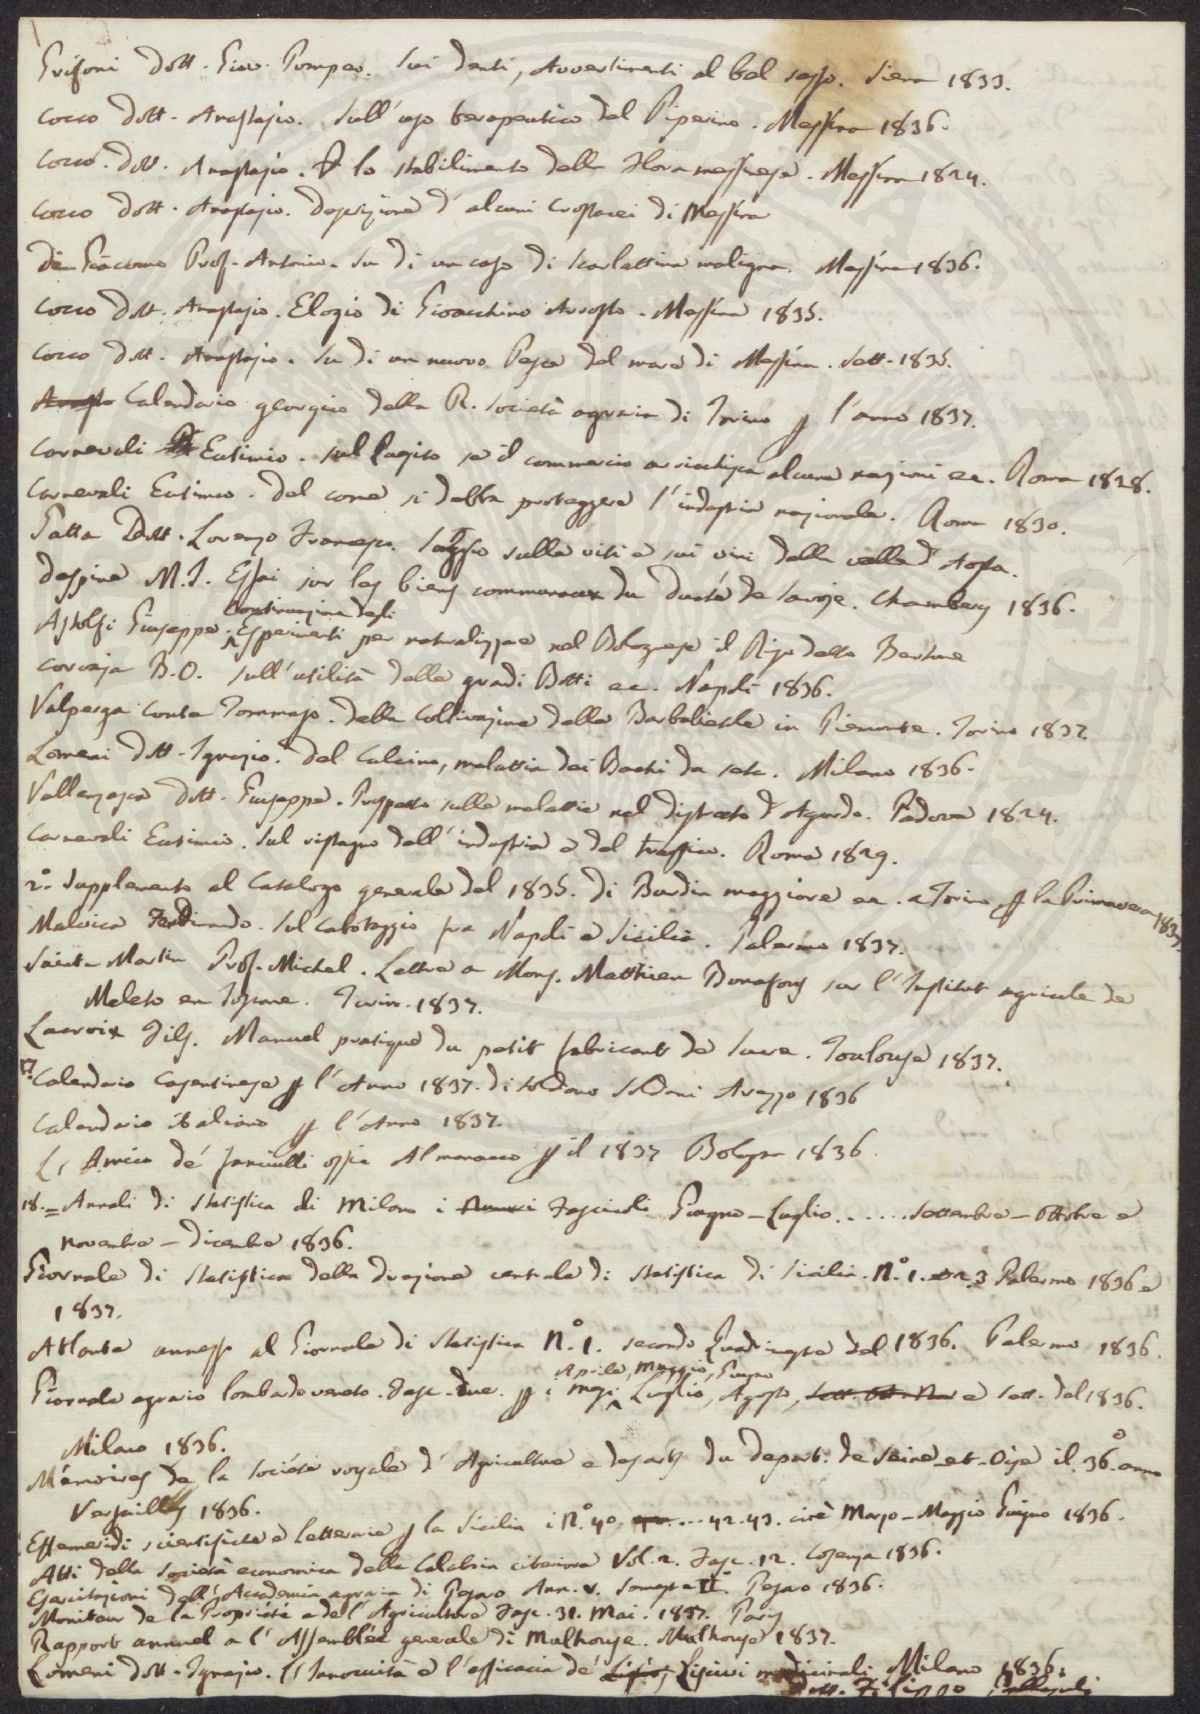 Grifoni Dott. Giov. Pompeo. Sui denti, Avvertimenti al bel sesso. Siena 1833.
Cocco Dott. Anastasio. Sull'uso terapeutico del Piperino. Messina 1836.
Cocco. Dott. Anastasio. lo stabilimento della Flora messinese. Messina 1824.
Cocco Dott. Anastasio. Descrizione d'alcuni crostacei di Messina
di Giacomo Prof. Antonio. Su di un caso di Scarlattina maligna. Messina 1836.
Cocco Dott. Anastasio. Elogio di Gioacchino Arrosto. Messina 1835.
Cocco Dott. Anastasio. Su di un nuovo Pesce del mare di Messina. Sett. 1835.
Calendario georgico della R. Società agraria di Torino p l'anno 1837.
Carnevali Eutimio. Sul quesito se il commercio arricchisca alcune nazioni ec. Roma 1828.
Carnevali Eutimio. Del come si debba proteggere l'industria nazionale. Roma 1830.
Gatta Dott. Lorenzo Francesco. Saggio sulle viti e sui vini della valle d'Aosta.
Despine M. J. Essai sur les biens communaux du Duché de Savoje. Chambery 1836.
continuazione degli
Astolfi Giuseppe. Esperimenti per naturalizzare nel Bolognese il Riso detto Bertone
Corvaja B.O. Sull'utilità delle grandi Botti ec. Napoli 1836.
Valperga Conte Tommaso. Della Coltivazione delle Barbabietole in Piemonte. Torino 1837.
Lomeni Dott. Ignazio. Del Calcino, malattia dei Bachi da seta. Milano 1836.
Vallenzasca Dott. Giuseppe. Prospetto sulle malattie nel distretto d'Agordo. Padova 1824.
Carnevali Eutimio. Sul ristagno dell'industria e del traffico. Roma 1829.
2.° Supplemento al Catalogo generale del 1835. di Burdin maggiore ec. a Torino p la Primavera 1837.
Malvica Ferdinando. Sul Cabotaggio fra Napoli e Sicilia. Palermo 1837.
Sainte Martin Prof. Michel. Lettre a Mons. Matthieu Bonafous sur l'Institut agricole de
Meleto en Toscane. Turin. 1837.
Lacroix Fils. Manuel pratique du petit fabricant de Sucre. Toulouse 1837.
17. Calendario Casentinese p l'Anno 1837. di Soldano Soldani Arezzo 1836
Calendario italiano p l'Anno 1837.
L'Amico de' fanciulli ossia Almanacco p il 1837 Bologna 1836.
18. = Annali di Statistica di Milano i Fascicoli Giugno - Luglio ...... Settembre - Ottobre e
novembre - dicembre 1836.
Giornale di Statistica della direzione centrale di Statistica di Sicilia. N.° 1. 2. 3 Palermo 1836 e
1837.
Atlante annesso al Giornale di Statistica N.° 1. secondo Quadrimestre del 1836. Palermo 1836.
Aprile, Maggio, Giugno
Giornale agrario lombardo veneto. Fasc. due. p i mesi Luglio, Agosto, Sett. Ott. Nov e Sett. del 1836.
Milano 1836.
Mémoires de la Société royale d'Agriculture e des arts du depart. de Seine-et-Oise il 36.° anno
Versailles 1836.
Effemeridi scientifiche e letterarie p la Sicilia i N.° 40 .... 42. 43. cioè Marzo - Maggio Giugno 1836.
Atti della Società economica della Calabria citeriore Vol. 2. Fasc. 12. Cosenza 1836.
Esercitazioni dell'Accademia agraria di Pesaro Ann. V. Semestre II.° Pesaro 1836.
Moniteur de la Propriété e de l'Agriculture Fasc. 31. Mai. 1837. Paris
Rapport annuel a l'Assemblée generale di Mulhouse. Mulhouse 1837.
Lomeni Dott. Ignazio. L'Innocuità e l'efficacia de' Liscivi medicinali. Milano 1836.
Dott. Filippo